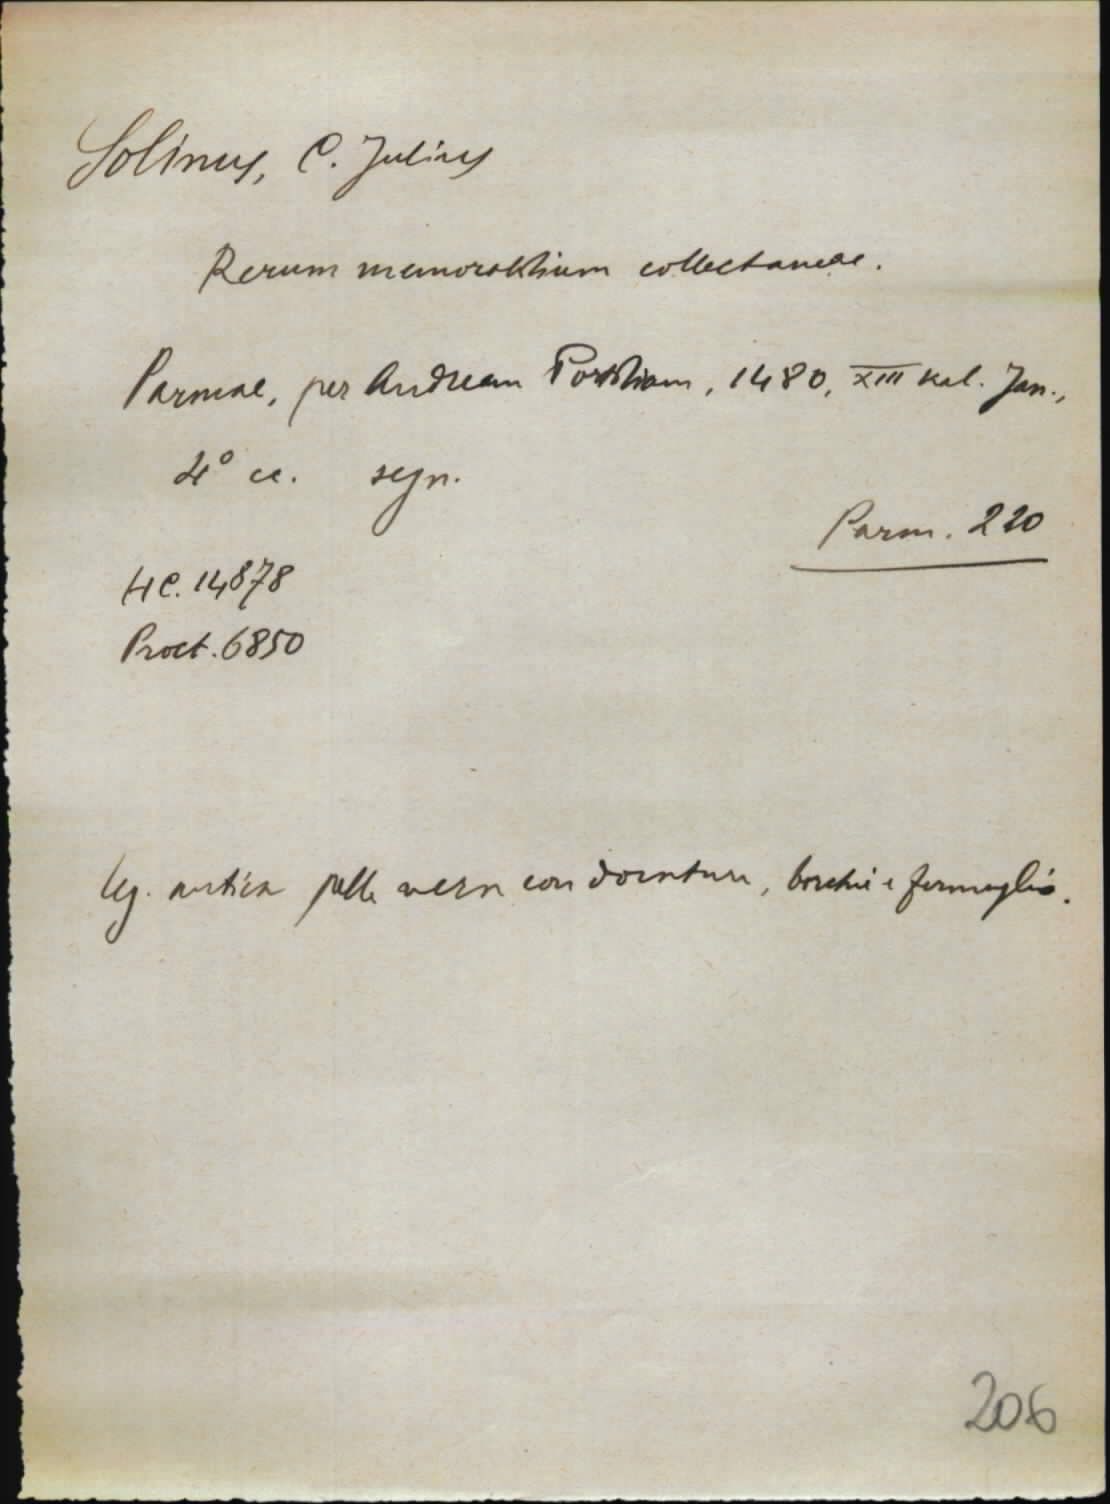 Solinus, C. Julius
Rerum memorabilium collectaneae.
Parmae, per Andream Portiliam, 1480, XIII kal. Jan.,
4° cc. segn.
Parm. 220
HC. 14878
Proct. 6850
leg. antica pelle nera con dorature, borchie e fermaglio.
206